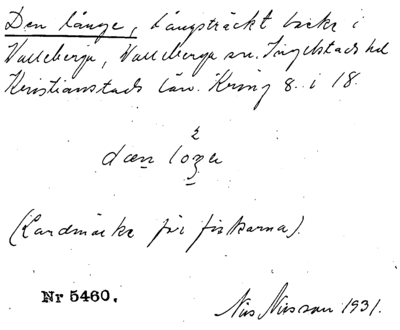 Den långe, långsträckt backe i
Valleberga, Valleberga sn. Ingelstads hd
Kristianstads län. Kring 8. i 18.
2
dæn loŋe
(Landmärke för fiskarna).
Nr 5460.
Nils Nilsson 1931.